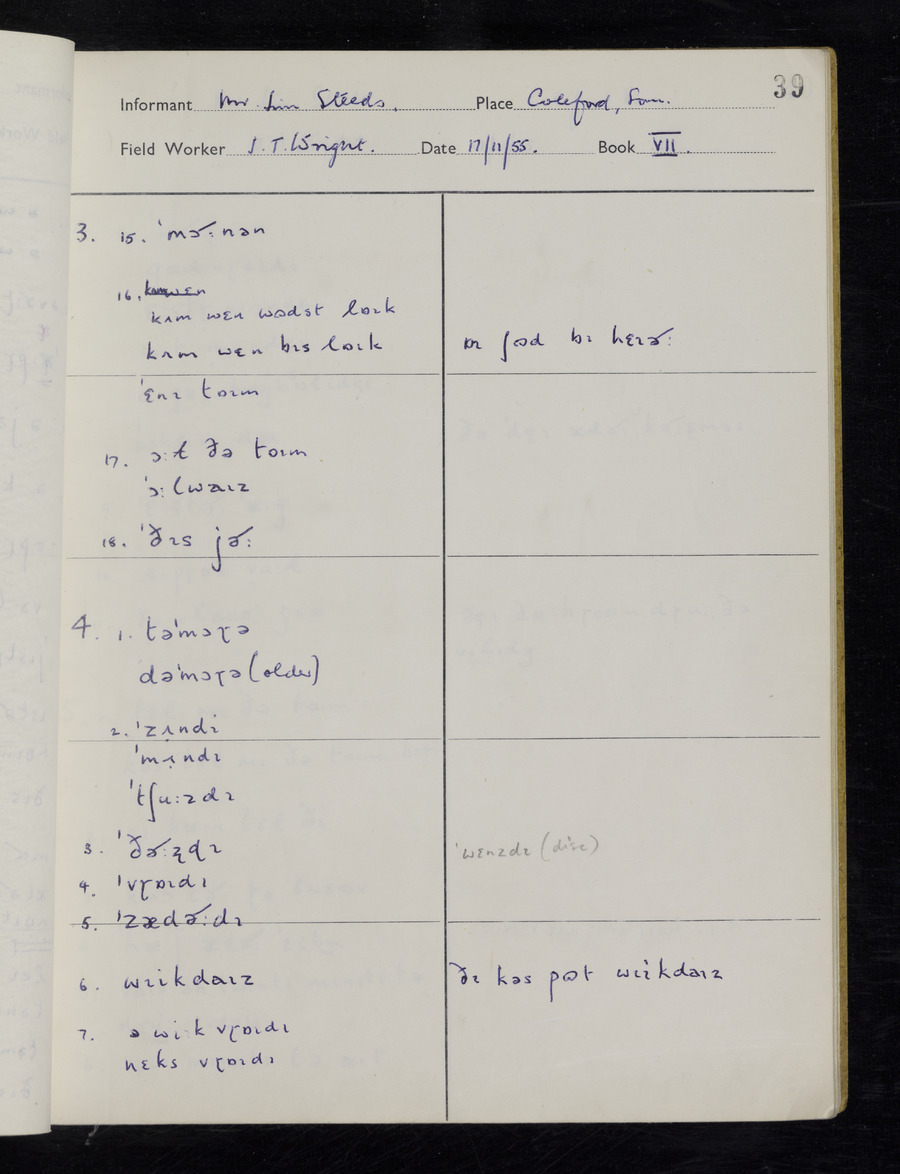 39
Informant Mr. Jim Steeds. Place Coleford, Som.
Field Worker J.T. Wright. Date 17/11/55. Book VII.
3. 15. ˈmɚ:nən
16. kʌm wɛn
kʌm wɛn wədst lɒɪk
kʌm wɛn bɪs lɒɪk
ʃəd bɪ hɛɪɚ:
ˈɛnɪ tɒɪm
17. ɔ:ɫ ðə tɒɪm
ˈɔ:lwaɪz
18. ˈðɪs jɚ:
4. 1. təˈmɔɽə
dəˈmɔɽə (older)
2. ˈzʌ̣ndi
ˈmʌ̣ndɪ
ˈtʃu:zdɪ
3. ˈðɚ:ʐɖɪ
ˈwɛnzdɪ (disc)
4. ˈvɽɒɪdɪ
5. ˈzædɚ:dɪ
6. wɪikdaɪz
ðɪ kəs pʊt wɪikdaɪz
7. ə wi:k vɽɒɪdɪ
nɛks vɽɒɪdɪ